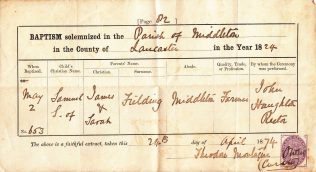 [Page 82
BAPTISM solemnized in the Parish of Middleton
in the County of Lancaster in the Year 1824
When Baptized. Child's Christian Name. Parents' Name Christian. Surname. Abode. Quality, Trade, or Profession. By whom the Ceremony was performed.
May 2 Samuel S. of James & Sarah Fielding Middleton Farmer John Houghton
No. 653
The above is a faithful extract, taken this 24th day of April 1874